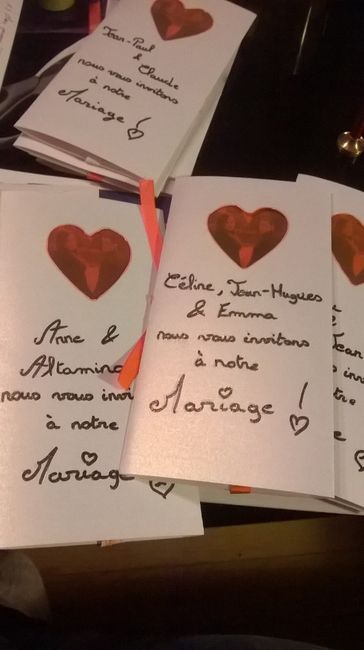 Jean-Paul
& Claude
nous vous invitons
à notre
Mariage !
Céline, Jean-Hugues
& Emma
nous vous invitons
à notre
Mariage !
Anne &
nous vous
à notre
Mariage